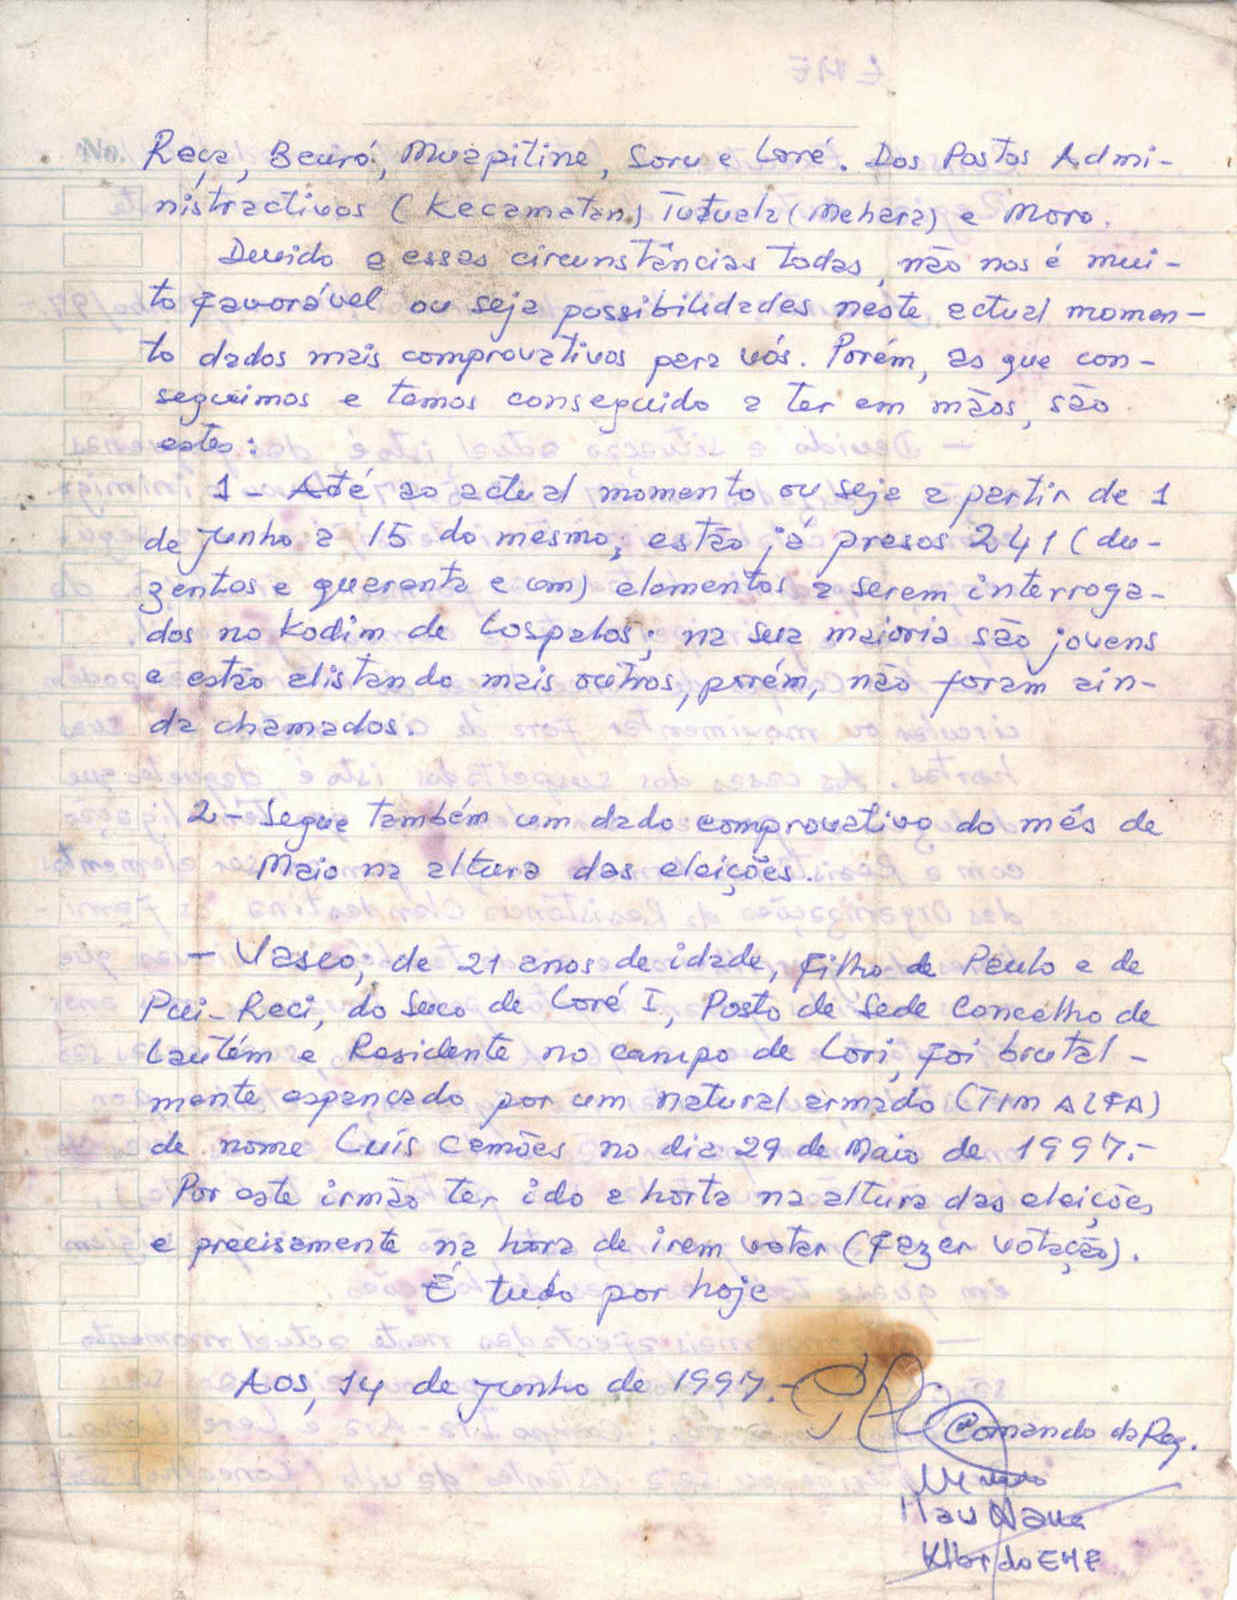 Raça, Beuró, Muapitine, Soru e Loré. Dos Postos Admi-
nistractivos (Kecamatan) Tutuala (Mehara) e Moro.
Devido a essas circunstâncias todas, não nos é mui-
to favorável ou seja possibilidades neste actual momen-
to dados mais comprovativos para vós. Porém, as que con-
seguimos e temos conseguido a ter em mãos, são
estes:
1 - Até ao actual momento ou seja a partir de 1
de junho a 15 do mesmo, estão já presos 241 (du-
zentos e quarenta e um) elementos a serem interroga-
dos no Kodim de Lospalos; na sua maioria são jovens
e estão alistando mais outros, porém, não foram ain-
da chamados.
2 - Segue também um dado comprovativo do mês de
Maio na altura das eleições.
- Vasco, de 21 anos de idade, filho de Paulo e de
Pui-Reci, do Suco de Loré I, Posto de Sede Concelho de
Lautém e Residente no campo de Lori, foi brutal-
mente espancado por um natural armado (TIM ALFA)
de nome Luís Camões no dia 29 de Maio de 1997.-
Por este irmão ter ido a horta na altura das eleições
e precisamente na hora de irem votar (fazer votação).
É tudo por hoje
Aos, 14 de junho de 1997.-
Comando da Reg.
do EMF